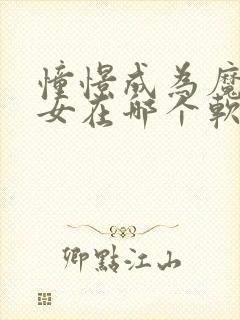 憧憬成為魔
女在哪个軟
卿點江山